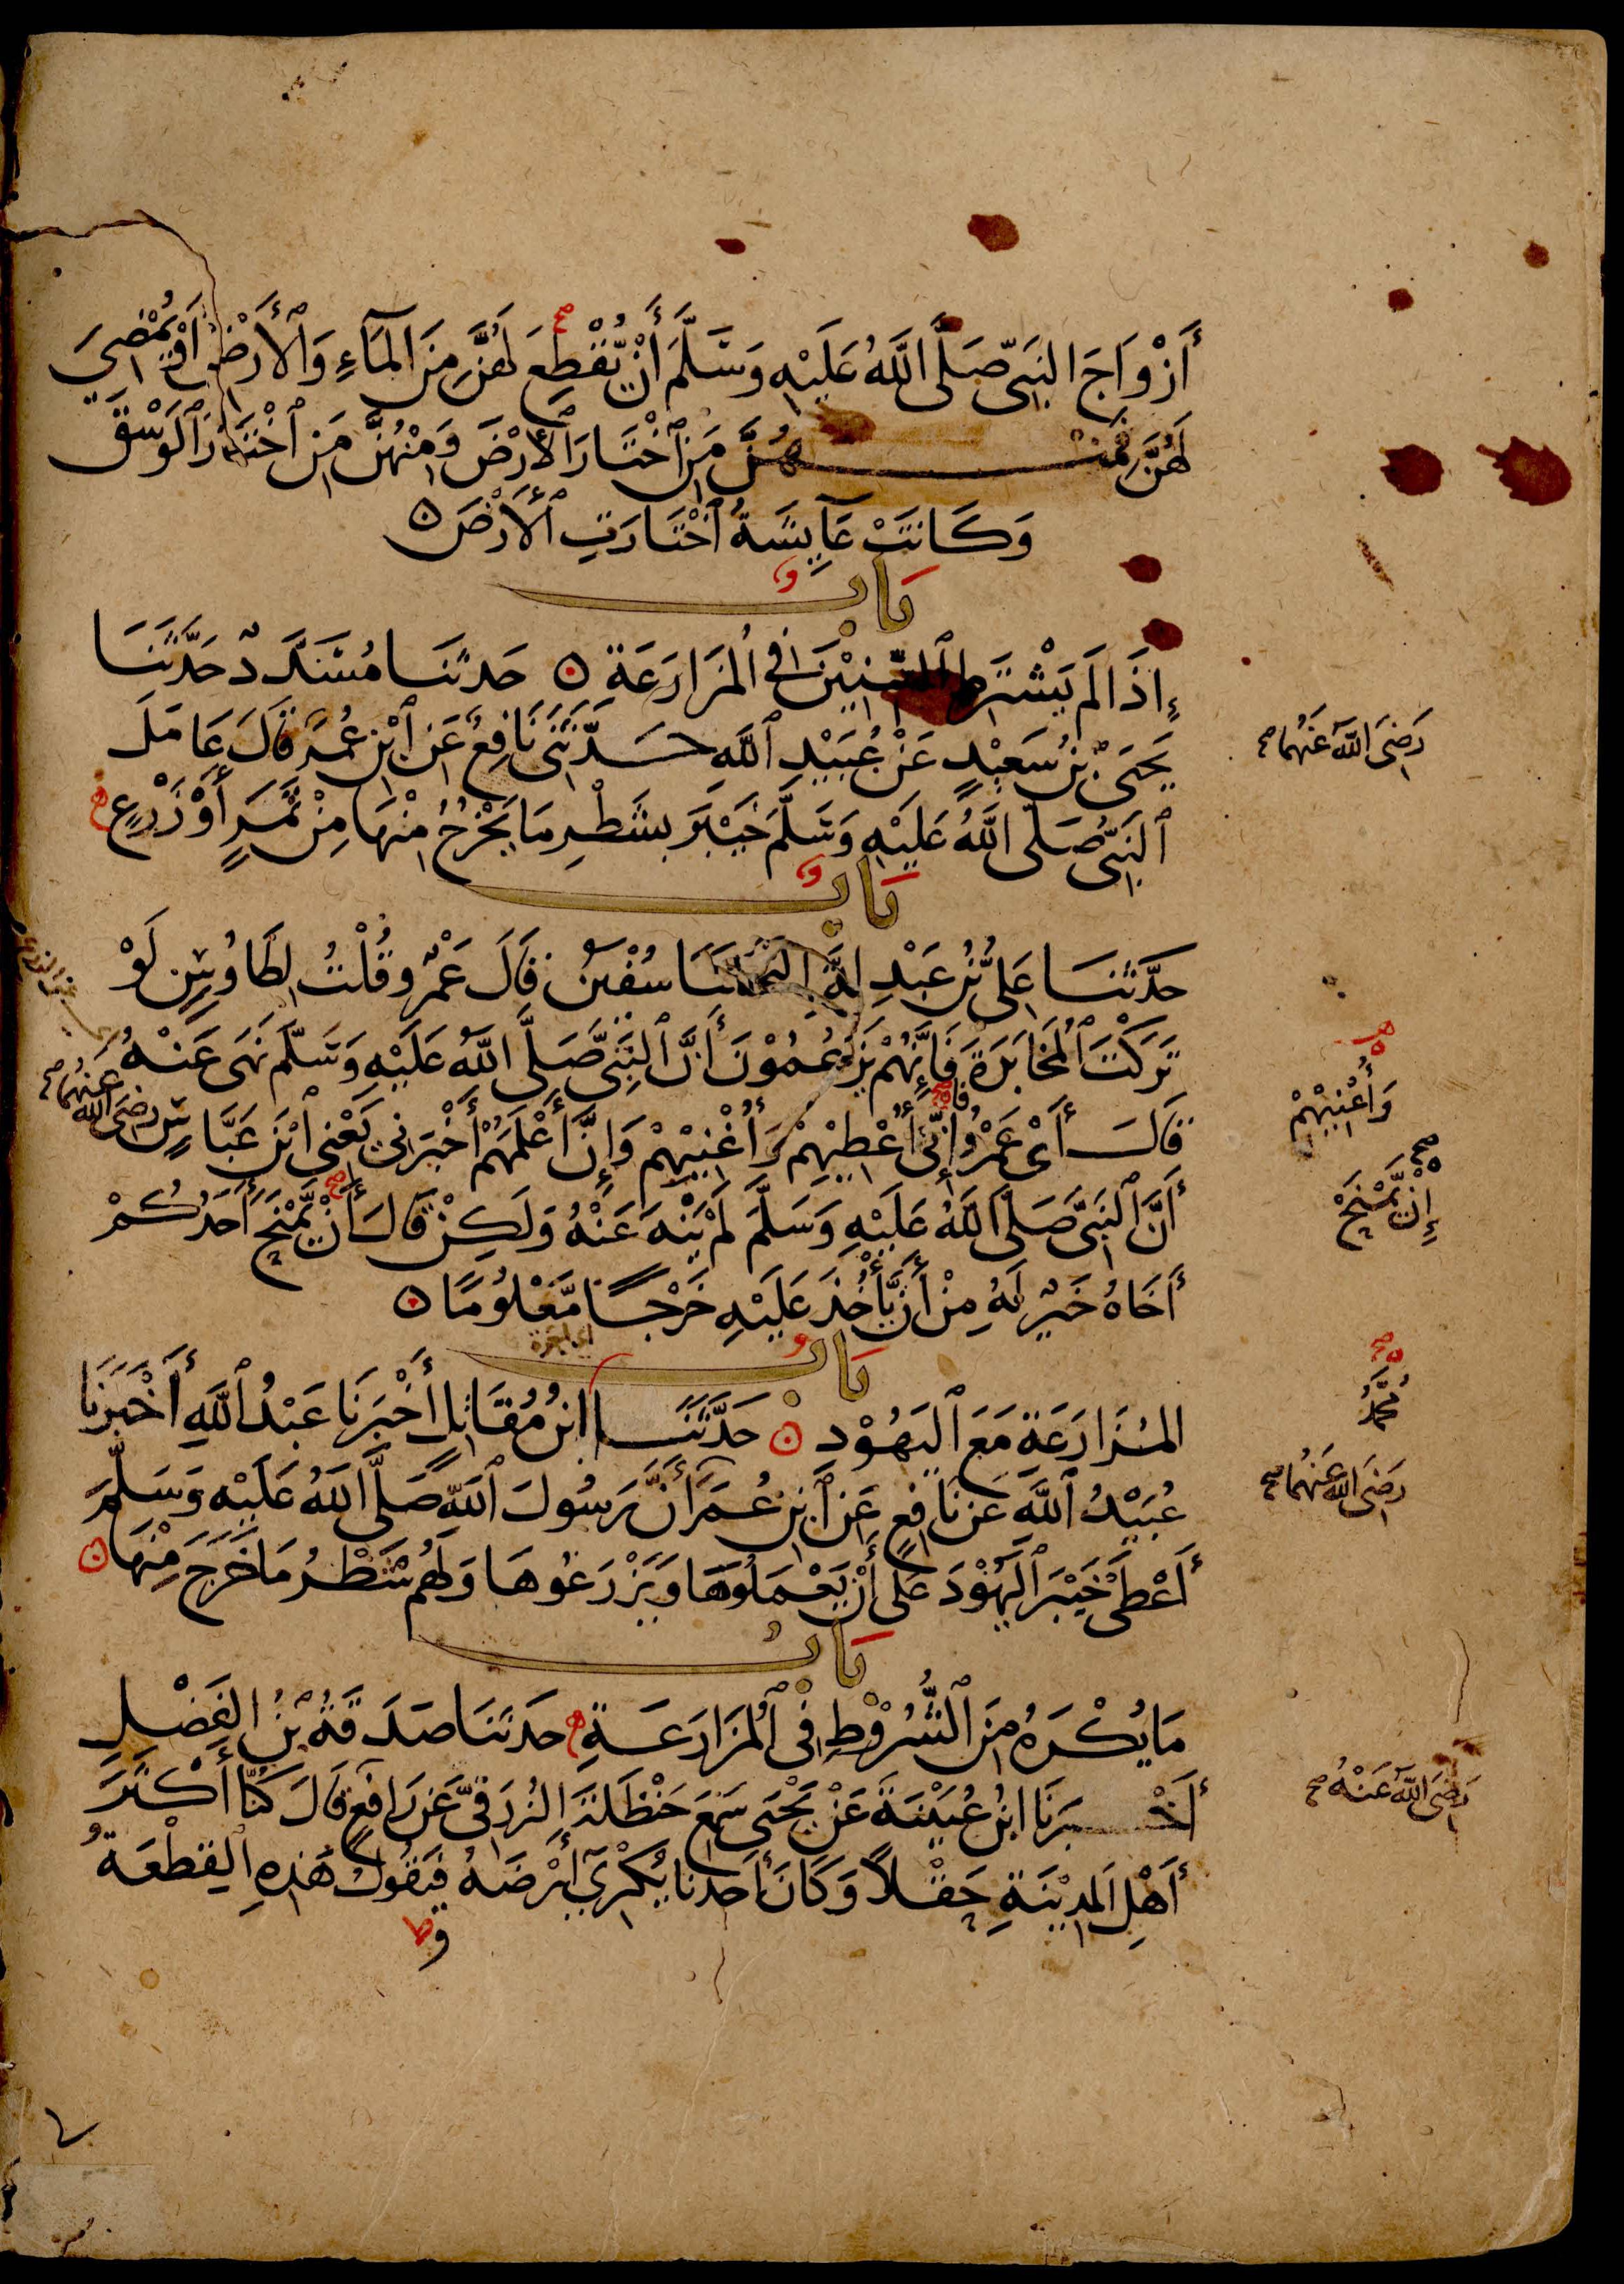 أَزْوَاجَ النَّبِيِّ صَلَّى اللَّهُ عَلَيْهِ وَسَلَّمَ أَنْ يُقْطِعَ لَهُنَّ مِنَ الْمَآءِ وَالْأَرْضِ أَوْ يُمْضِيَ
لَهُنَّ فَمِنْهُنَّ مَنِ اخْتَارَ الْأَرْضَ وَمِنْهُنَّ مَنِ اخْتَارَ الْوَسْقَ
وَكَانَتْ عَآيِشَةُ اخْتَارَتِ الْأَرْضَ ه
بَابٌ
إِذَا لَمْ يَشْتَرِطِ السِّنِيْنَ فِي الْمُزَارَعَةِ ه حَدَّثَنَا مُسَدَّدٌ حَدَّثَنَا
يَحْيَى بْنُ سَعِيْدٍ عَنْ عُبَيْدِ اللَّهِ حَدَّثَنِي نَافِعٌ عَنِ ابْنِ عُمَرَ قَالَ عَامَلَ
رَضِيَ اللَّهُ عَنْهُمَا صح
النَّبِيُّ صَلَّى اللَّهُ عَلَيْهِ وَسَلَّمَ خَيْبَرَ بِشَطْرِ مَا يَخْرُجُ مِنْهَا مِنْ ثَمَرٍ أَوْ زَرْعٍ ه
بَابٌ
حَدَّثَنَا عَلِيُّ بْنُ عَبْدِ اللَّهِ حَدَّثَنَا سُفْيٰنُ قَالَ عَمْرٌو قُلْتُ لِطَاوُسٍ لَوْ
تَرَكْتَ الْمُخَابَرَةَ فَإِنَّهُمْ يَزْعُمُوْنَ أَنَّ النَّبِيَّ صَلَّى اللَّهُ عَلَيْهِ وَسَلَّمَ نَهَى عَنْهُ
قَالَ أَيْ عَمْرُو إِنِّي أُعْطِيْهِمْ وَأُغْنِيْهِمْ وَإِنَّ أَعْلَمَهُمْ أَخْبَرَنِي يَعْنِي ابْنَ عَبَّاسٍ رَضِيَ اللَّهُ عَنْهُمَا صح
وَأُعْنِيْهِمْ
أَنَّ النَّبِيَّ صَلَّى اللَّهُ عَلَيْهِ وَسَلَّمَ لَمْ يَنْهَ عَنْهُ وَلَكِنْ قَالَ أَنْ يَّمْنَحَ أَحَدُكُمْ
إِنْ يَّمْنَحْ
أَخَاهُ خَيْرٌ لَهُ مِنْ أَنْ يَّأْخُذَ عَلَيْهِ خَرْجًا مَّعْلُومًا ه
اى اجرة
بَابُ
الْمُزَارَعَةِ مَعَ الْيَهُوْدِ ه حَدَّثَنَا ابْنُ مُقَاتِلٍ أَخْبَرَنَا عَبْدُ اللَّهِ أَخْبَرَنَا
مُحَمَّدُ
عُبَيْدُ اللَّهِ عَنْ نَافِعٍ عَنِ ابْنِ عُمَرَ أَنَّ رَسُولَ اللَّهِ صَلَّى اللَّهُ عَلَيْهِ وَسَلَّمَ
رَضِيَ اللَّهُ عَنْهُمَا صح
أَعْطَى خَيْبَرَ الْيَهُوْدَ عَلَى أَنْ يَعْمَلُوهَا وَيَزْرَعُوهَا وَلَهُمْ شَطْرُ مَا خَرَجَ مِنْهَا ه
بَابُ
مَا يُكْرَهُ مِنَ الشُّرُوْطِ فِي الْمُزَارَعَةِ ه حَدَّثَنَا صَدَقَةُ بْنُ الْفَضْلِ
أَخْبَرَنَا ابْنُ عُيَيْنَةَ عَنْ يَحْيَى سَمِعَ حَنْظَلَةَ الزُّرَقِيَّ عَنْ رَافِعٍ قَالَ كُنَّا أَكْثَرَ
رَضِيَ اللَّهُ عَنْهُ صح
أَهْلِ الْمَدِيْنَةِ حَقْلًا وَكَانَ أَحَدُنَا يُكْرِيْ أَرْضَهُ فَيَقُولُ هَذِهِ الْقِطْعَةُ